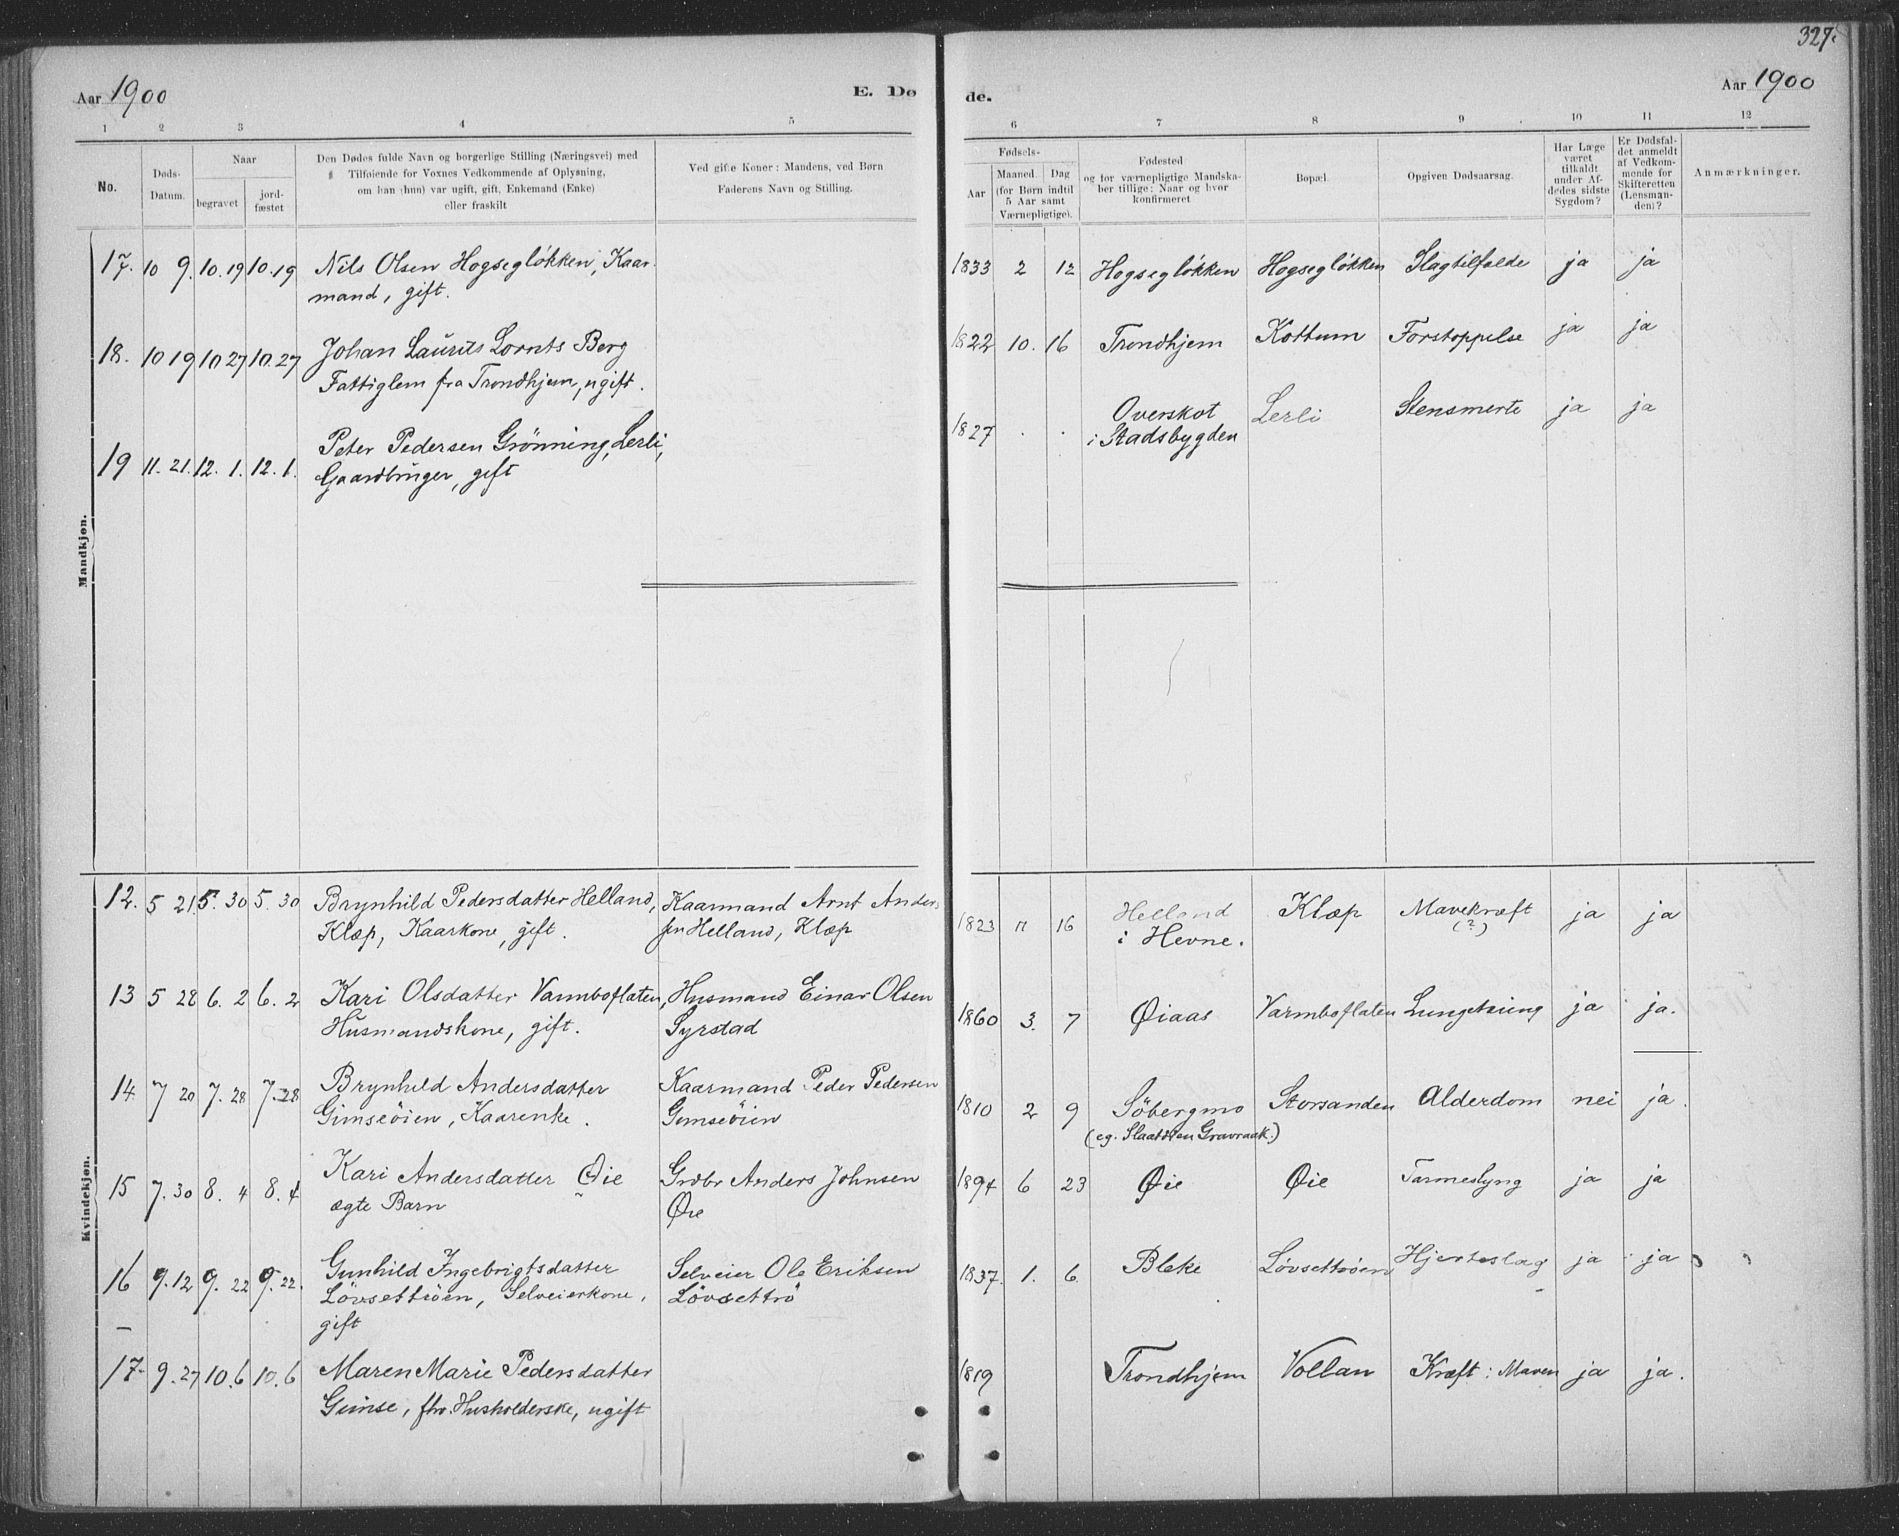 327.
Aar 1900
E. Dø
de.
Aar 1900
1 2 3 4 5 6 7 8 9 10 11 12
No.
Døds-
Datum.
Naar
begravet
jord-
fæstet
Den Dødes fulde Navn og borgerlige Stilling (Næringsvei) med
Tilføiende for Voxnes Vedkommende af Oplysning,
om han (hun) var ugift, gift, Enkemand (Enke)
eller fraskilt
Ved gifte Koner: Mandens, ved Børn
Faderens Navn og Stilling.
Fødsels-
Aar
Maaned. Dag
(for Børn indtil
5 Aar samt
Værnepligtige).
Fødested
og for værnepligtige Mandska-
ber tillige: Naar og hvor
konfirmeret
Bopæl.
Opgiven Dødsaarsag.
Har Læge
været
tilkaldt
under Af-
dødes sidste
Sygdom?
Er Dødsfal-
det anmeldt
af Vedkom-
mende for
Skifteretten
(Lensman-
den)?
Anmærkninger.
Mandkjøn.
17. 10 9. 10.19 10.19 Nils Olsen Hogsegløkken, Kaar-
mand, gift.
1833 2 12 Hogsegløkken Hogsegløkken Slagtilfælde ja ja
18. 10 19 10 27 10.27 Johan Laurits Lornts Berg
Fattiglem fra Trondhjem, ugift.
1822 10. 16 Trondhjem Kottum Forstoppelse ja ja
19 11. 21. 12. 1. 12. 1. Peter Pedersen Grönning, Lerli,
Gaardbruger, gift
1827 . . Overskot
i Stadsbygden
Lerli Stensmerte ja ja
Kvindekjøn.
12. 5 21 5. 30 5. 30 Brynhild Pedersdatter Helland,
Klæp, Kaarkone, gift.
Kaarmand Arnt Anders
sen Helland, Klæp
1823 16 Helland
i Hevne.
Klæp Mavekræft
(?)
ja ja
13 5 28 6. 2 6. 2 Kari Olsdatter Varmboflaten,
Husmandskone, gift.
Husmand Einar Olsen
Syrstad
1860 3. 7 Øiaas Varmboflaten Lungetæring ja ja.
14 7 20 7. 28 7.28 Brynhild Andersdatter
Gimseöien, Kaarenke.
Kaarmand Peder Pedersen
Gimseöien
1810 2 9 Söbergmo
(eg. Gravraak.)
Storsanden Alderdom nei ja.
15 7. 30 8. 4 8. 4 Kari Andersdatter Øie
ægte Barn
Grdbr Anders Johnsen
Øie
1894 6 23 Øie Øie Tarmeslyng ja ja
16 9. 12 9. 22 9. 22. Gunhild Ingebrigtsdatter
Løvsettröen, Selveierkone,
gift
Selveier Ole Eriksen
Løvsettrö
1837. 1. 6. Bleke Løvsettröen Hjerteslag ja ja
17. 9. 27 10. 6 10. 6 Maren Marie Pedersdatter
Gimse, fhv. Husholderske, ugift
1819 Trondhjem Vollan Kræft i Maven ja ja.